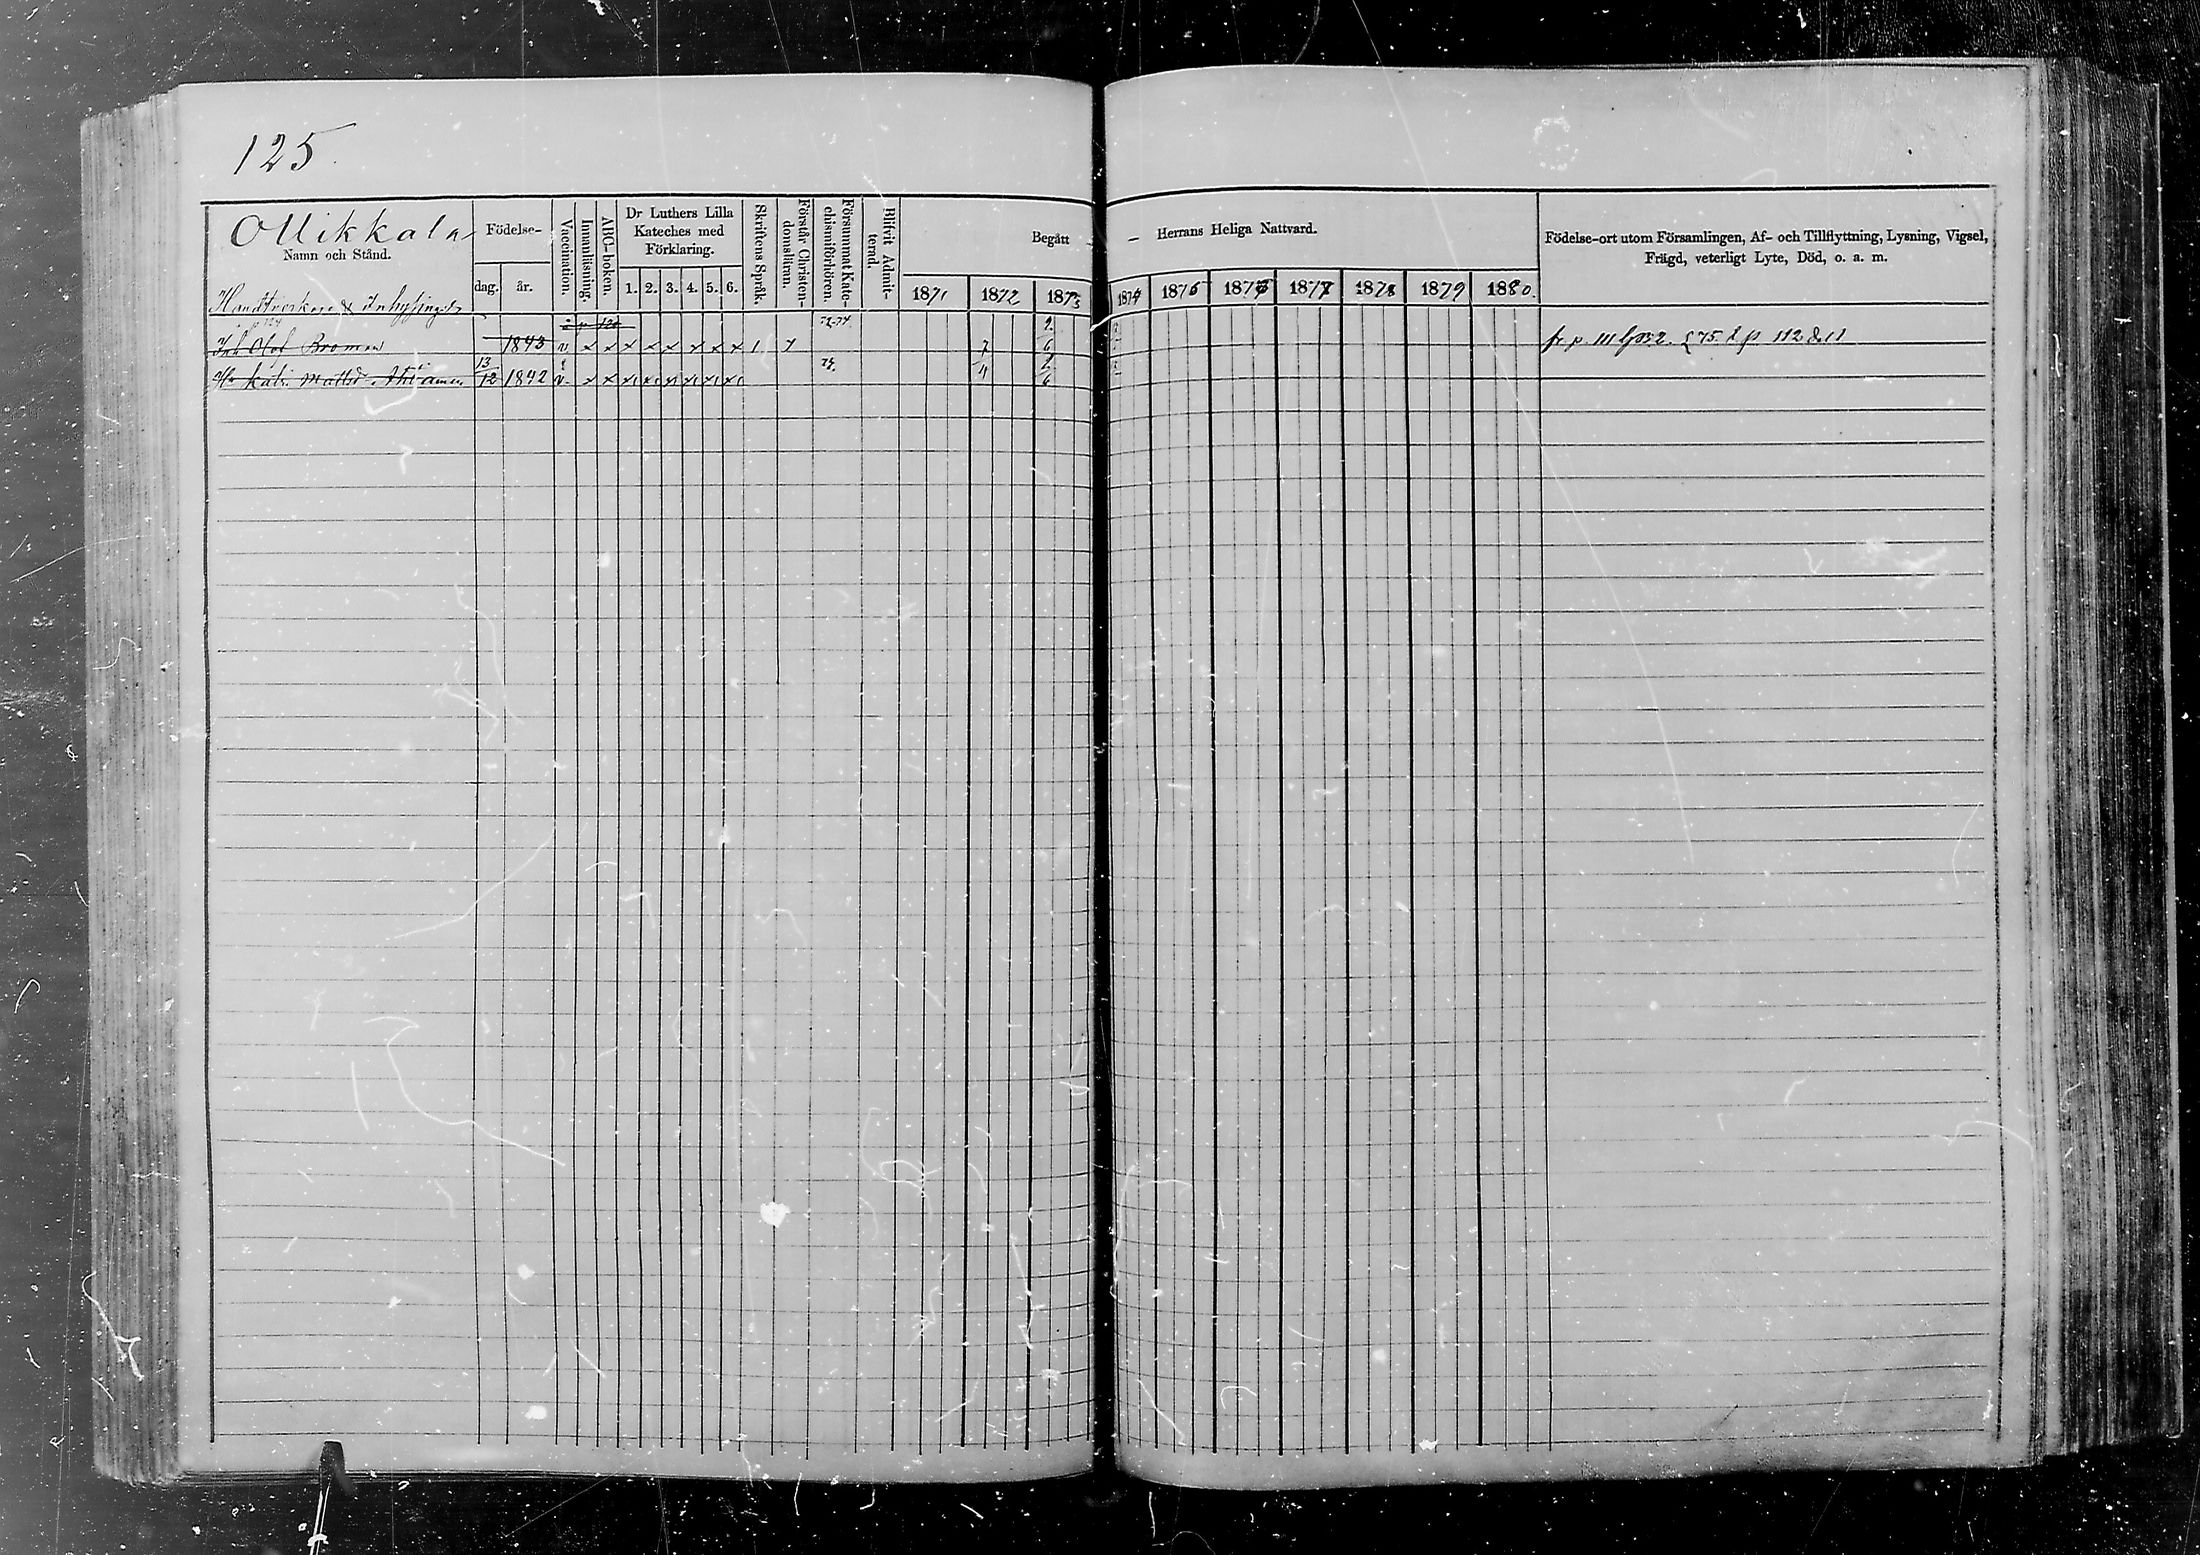 125
Ollikkala
Namn och Stånd.
Födelse-
dag. år.
Vaccination.
Innanläsning.
ABC-boken.
Dr Luthers Lilla
Kateches med
Förklaring.
1. 2. 3. 4. 5. 6.
Skriftens Språk.
Förstår Christen-
domsläran.
Försummat Kate-
chismiförhören.
Blifvit Admit-
terad.
Begått — Herrans Heliga Nattvard.
1871 1872 1873 1874 1875 1876 1877 1878 1879 1880.
Födelse-ort utom Församlingen, Af- och Tillflyttning, Lysning, Vigsel,
Frägd, veterligt Lyte, Död, o. a. m.
Handtverkare & Inhysingar
Inh. Olof Broman 1843 v x x x x x x x x 1 x 72-74 7 2/6
H. Katr. Mattsd. 13/12 1842 v x x x x x x x x 74 4 2/6